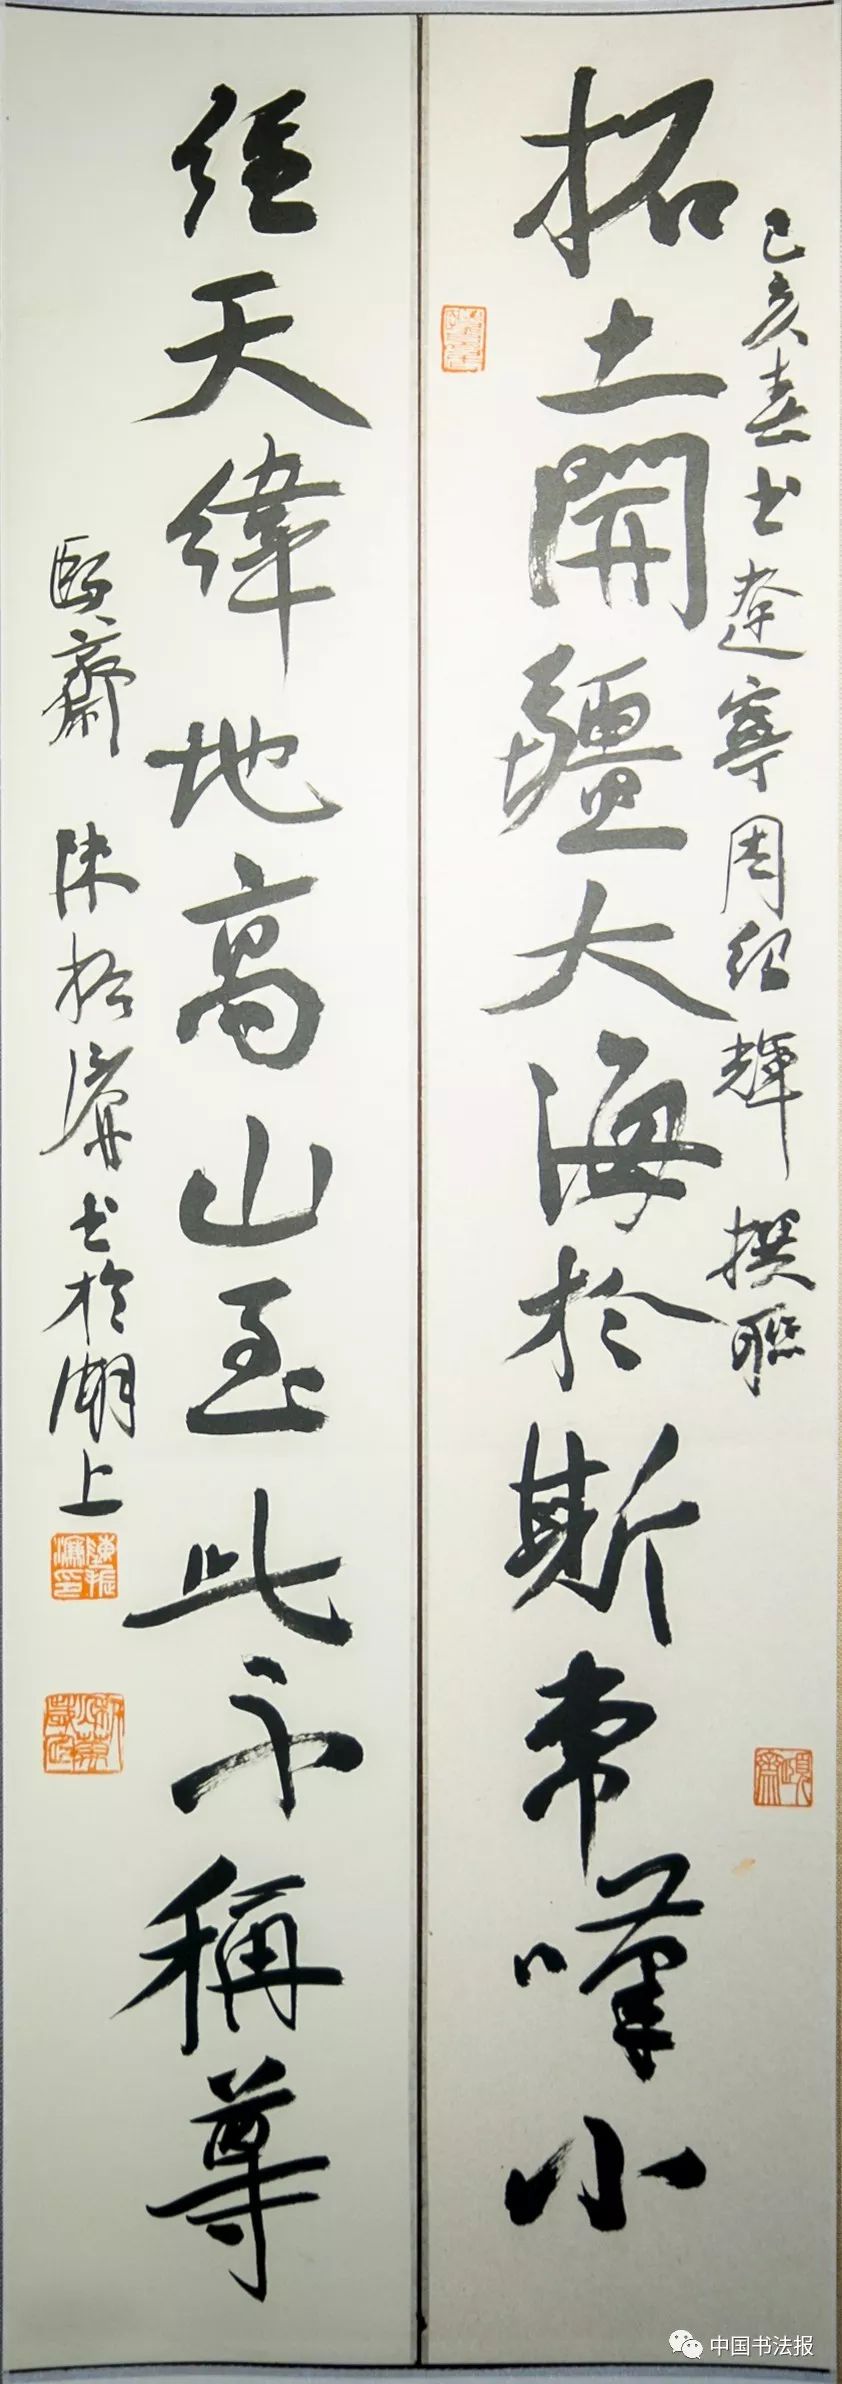 己亥春书遼寧周紹輝撰聯
拓土開疆大海於斯常嘆小
經天緯地高山至此不稱尊
頤齋 陳振濂书於湖上
陳振濂印
中国书法报